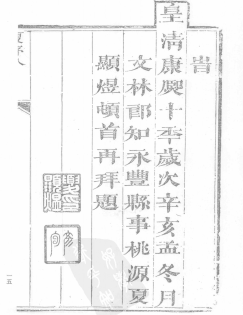 旹
皇清康熙十年歲次辛亥孟冬月
文林郎知永豐縣事桃源夏
顯煜頓首再拜題
一五